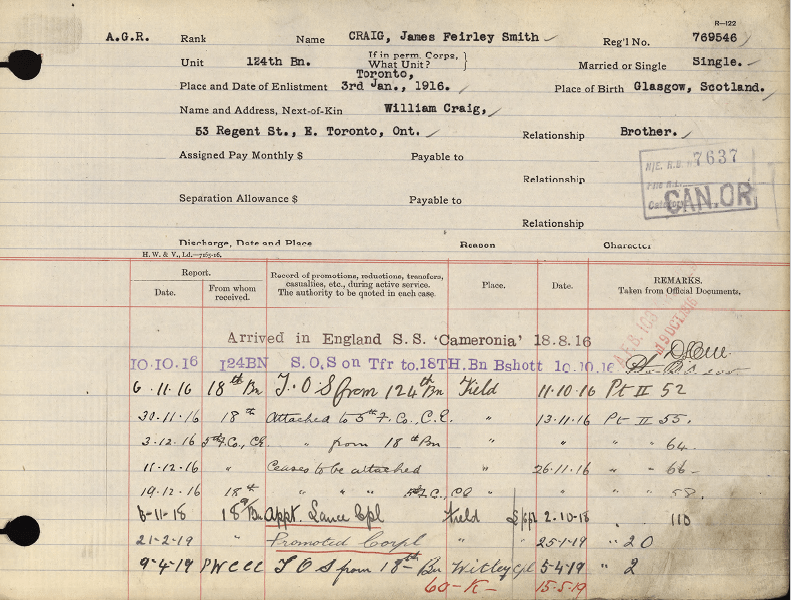 R-122
A.G.R. Rank Name CRAIG, James Feirley Smith Reg'l No. 769546
Unit 124th Bn. If in perm. Corps, What Unit? Married or Single Single.
Toronto,
Place and Date of Enlistment 3rd Jan., 1916. Place of Birth Glasgow, Scotland.
Name and Address, Next-of-Kin William Craig,
53 Regent St., E. Toronto, Ont. Relationship Brother.
Assigned Pay Monthly $ Payable to
Relationship
7637
CAN.OR
Separation Allowance $ Payable to
Relationship
Discharge, Date and Place Reason Character
H. W. & V., Ld.—7165-16.
Report. Record of promotions, reductions, transfers, casualties, etc., during active service. The authority to be quoted in each case. Place. Date. REMARKS. Taken from Official Documents.
Date. From whom received.
Arrived in England S.S. 'Cameronia' 18.8.16
10.10.16 124BN S.O.S on Tfr to.18TH.Bn Bshott 10.10.16
6.11.16 18th Bn T.O.S from 124th Bn Field 11.10.16 Pt II 52
30.11.16 18th Attached to 5th F. Co., C.E. " 13.11.16 Pt II 55.
3.12.16 5th F. Co., C.E. " from 18th Bn " " " " 64.
11.12.16 " Ceases to be attached " 26.11.16 " " 66
19.12.16 18th " " " 5th F.C., CE " " " " 58.
18th Bn Appt. Lance Cpl Field L/Cpl 2.10.18 110
21-2-19 " Promoted Corpl " " 25-1-19 " 20
9-4-19 PWCCC T O S from 18th Bn Witley Cpl 5-4-19 " 2
60-K- 15-5-19